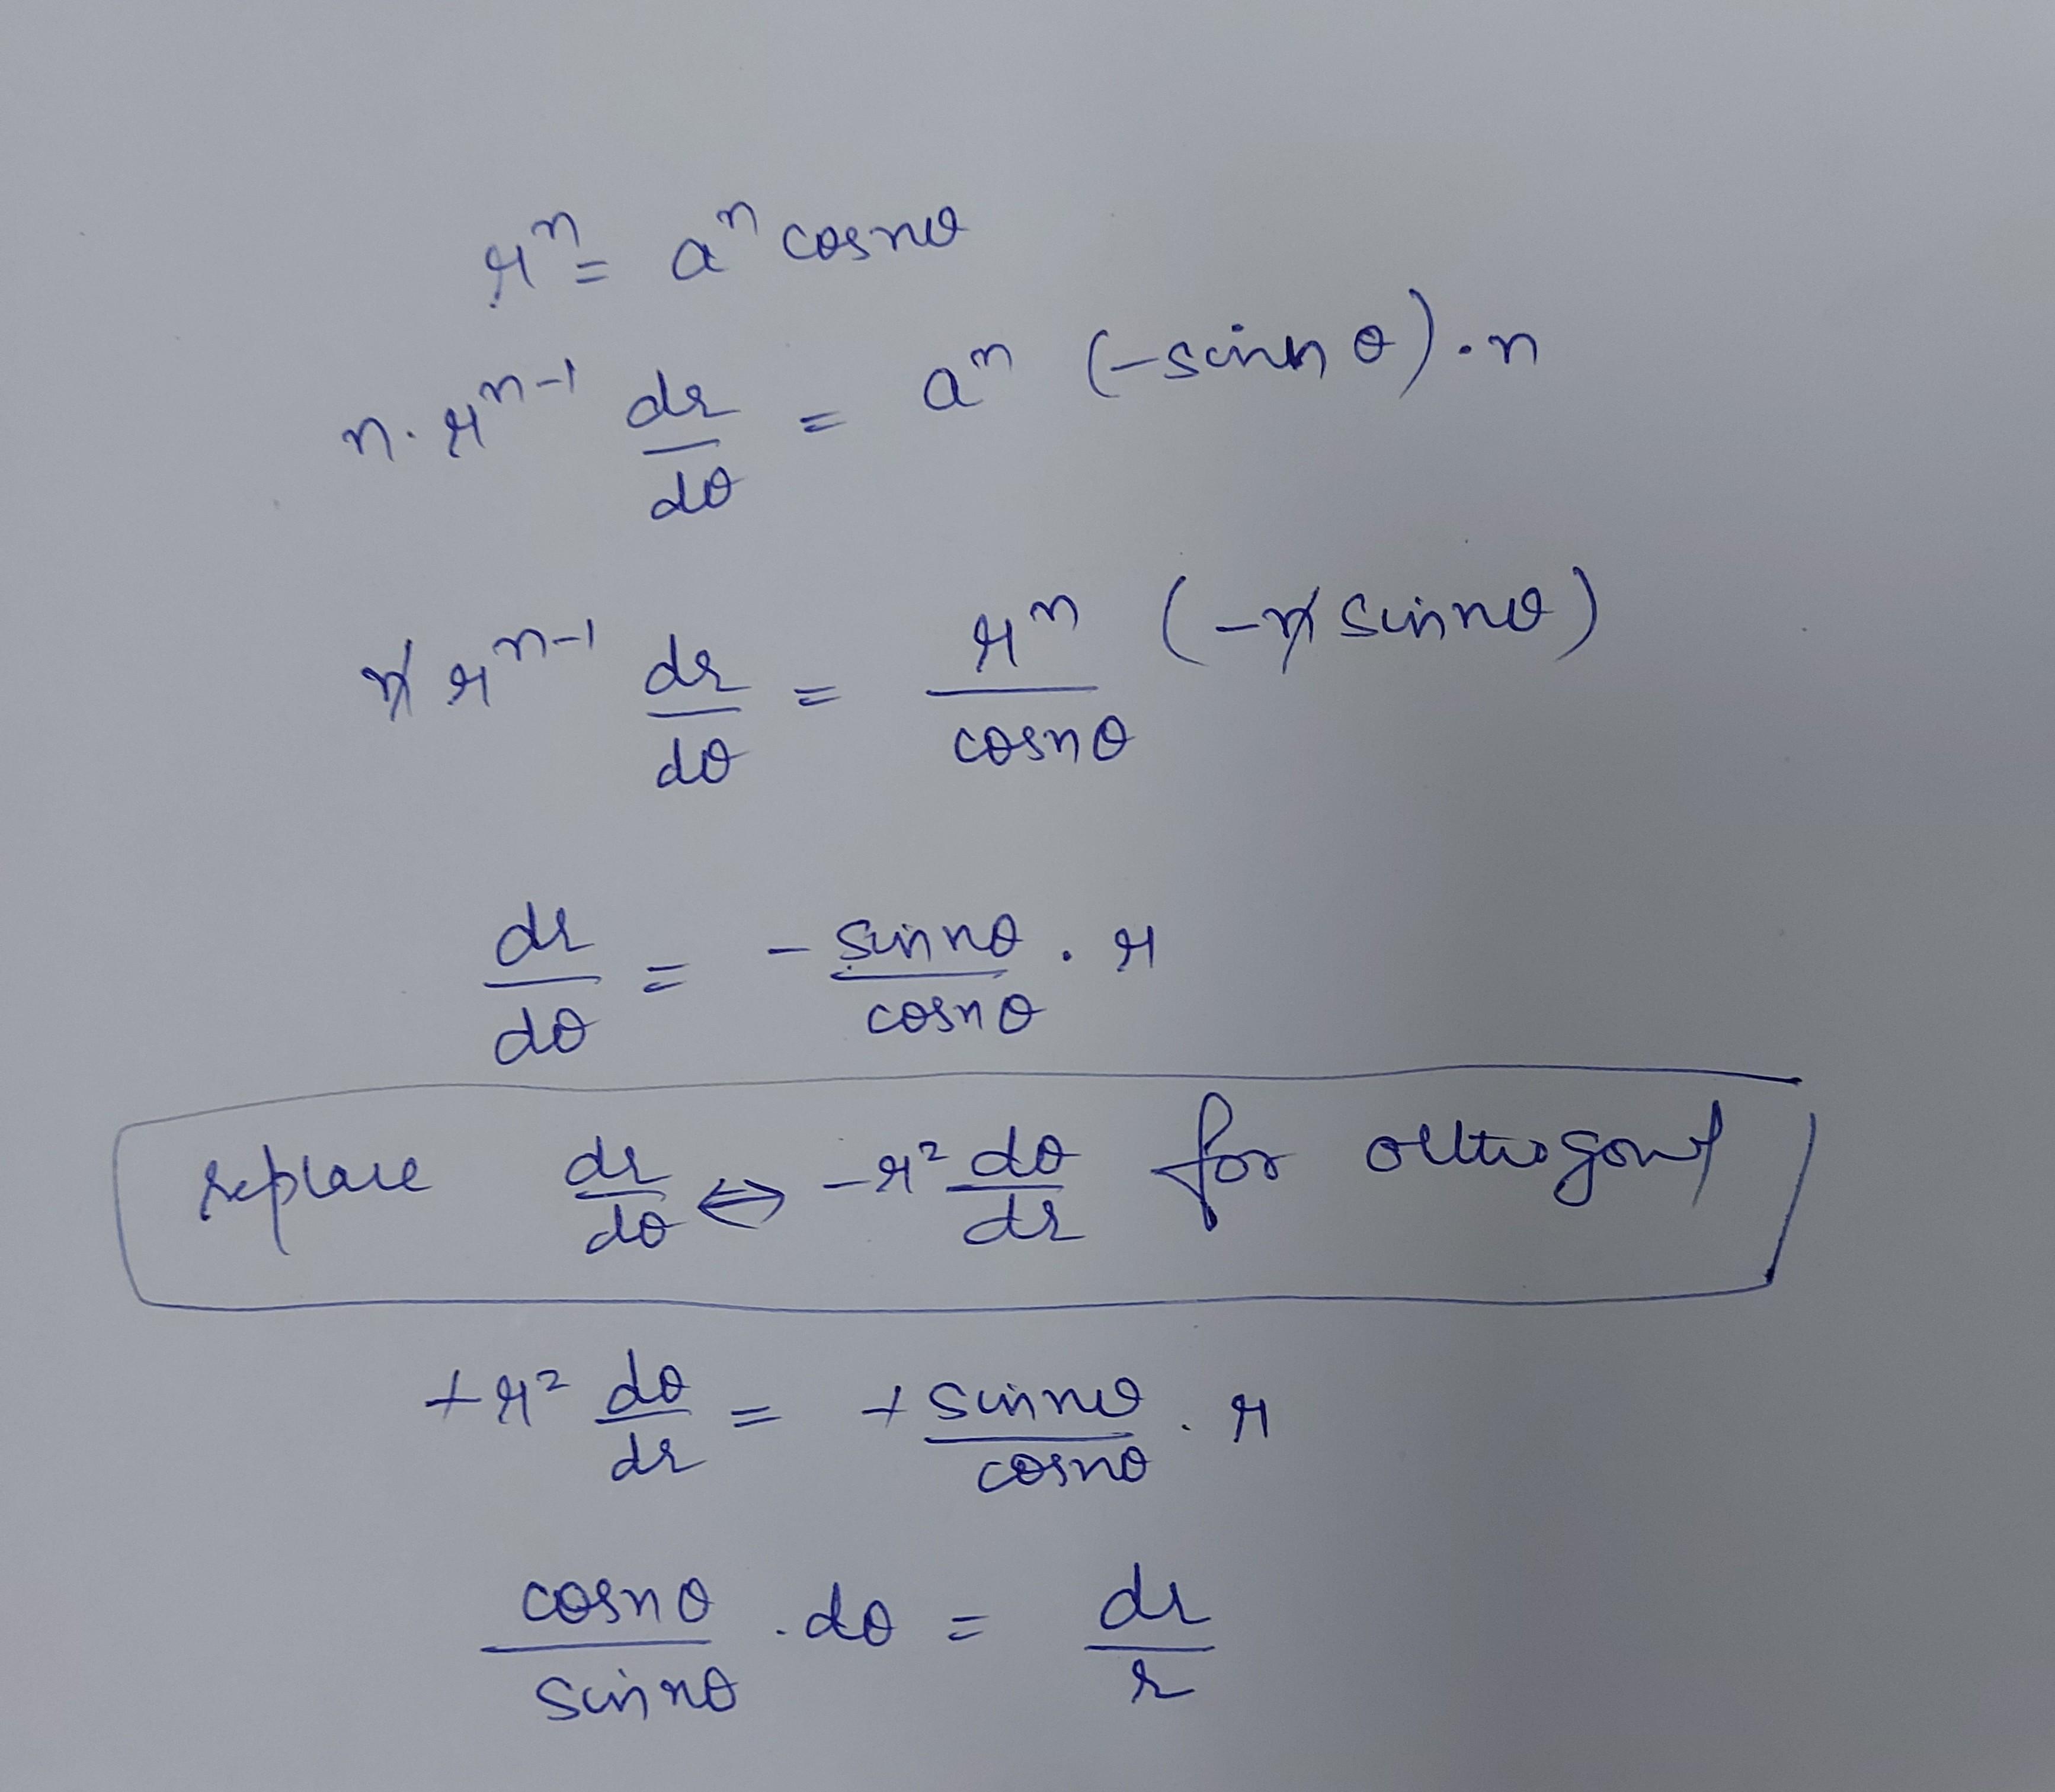 rⁿ = aⁿ cosnθ
n·rⁿ⁻¹ dr/dθ = aⁿ (-sinnθ)·n
n rⁿ⁻¹ dr/dθ = rⁿ/cosnθ (-n sinnθ)
dr/dθ = - sinnθ/cosnθ · r
replace dr/dθ ⇔ -r² dθ/dr for
+r² dθ/dr = + sinnθ/cosnθ · r
cosnθ/sinnθ · dθ = dr/r